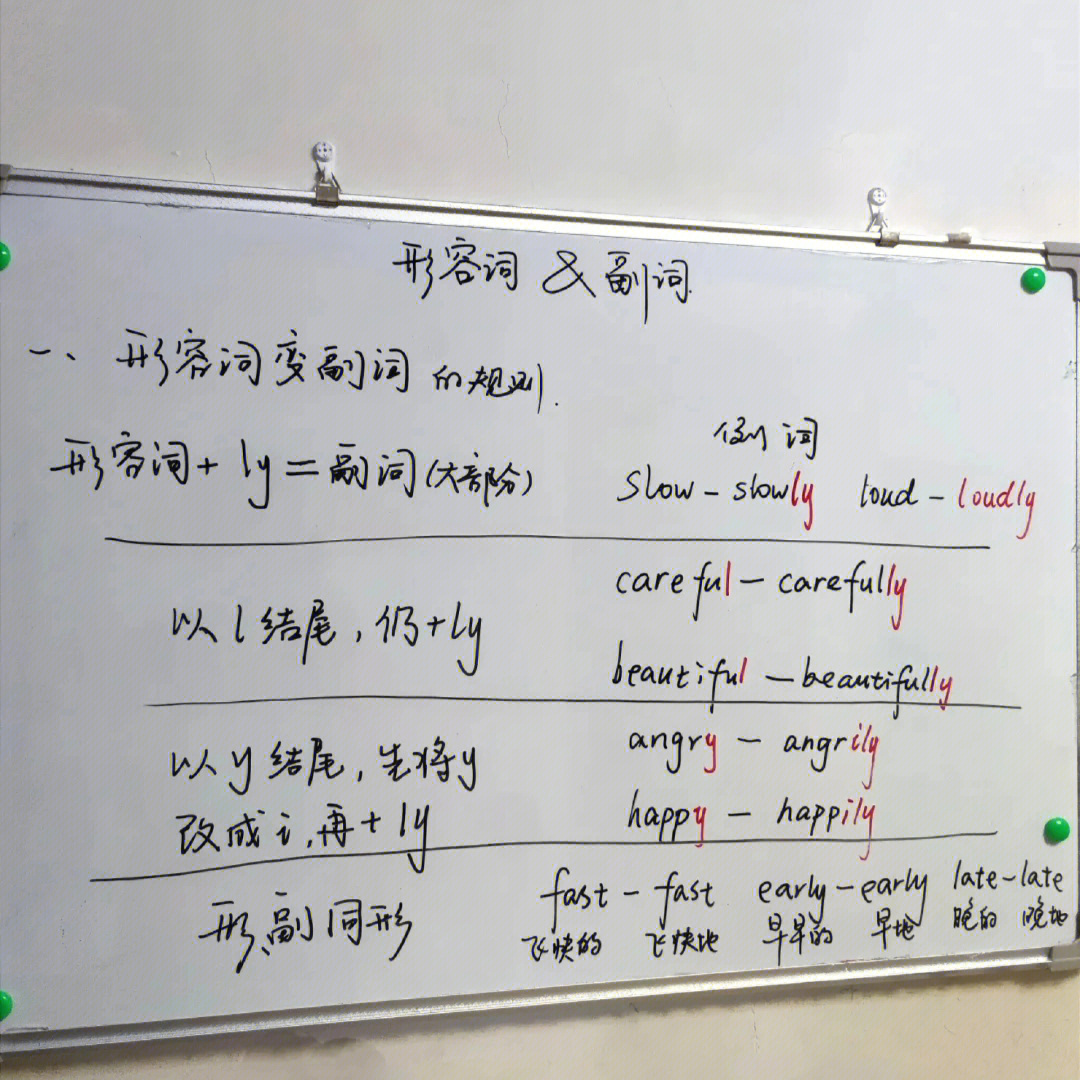 形容词 & 副词
一、形容词变副词的规则.
例词
形容词 + ly = 副词 (大部分) slow - slowly loud - loudly
careful - carefully
以l结尾, 仍+ly
beautiful - beautifully
以y结尾, 先将y angry - angrily
改成i, 再+ly happy - happily
形、副同形 fast - fast early - early late - late
飞快的 飞快地 早早的 早地 晚的 晚地